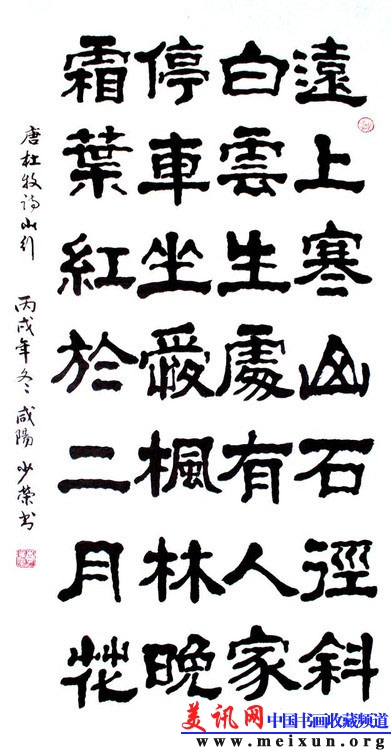 遠上寒山石徑斜
白雲生處有人家
停車坐愛楓林晚
霜葉紅於二月花
唐杜牧诗山行 丙戌年冬 咸陽 少榮书
美讯网 中国书画收藏频道
www.meixun.org